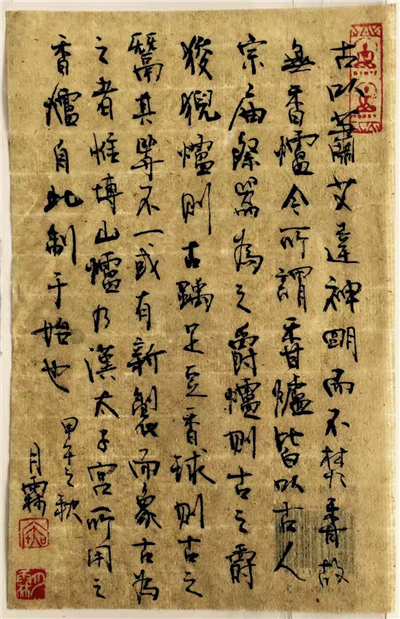 古以蕭艾達神明而不焚香故
無香爐今所謂香爐皆以古人
宗廟祭器為之爵爐則古之爵
狻猊爐則古踽足豆香球則古之
鬵其等不一或有新製而象古為
之者惟博山爐乃漢太子宮所用之
香爐自此制于始也
甲午之秋
月霖